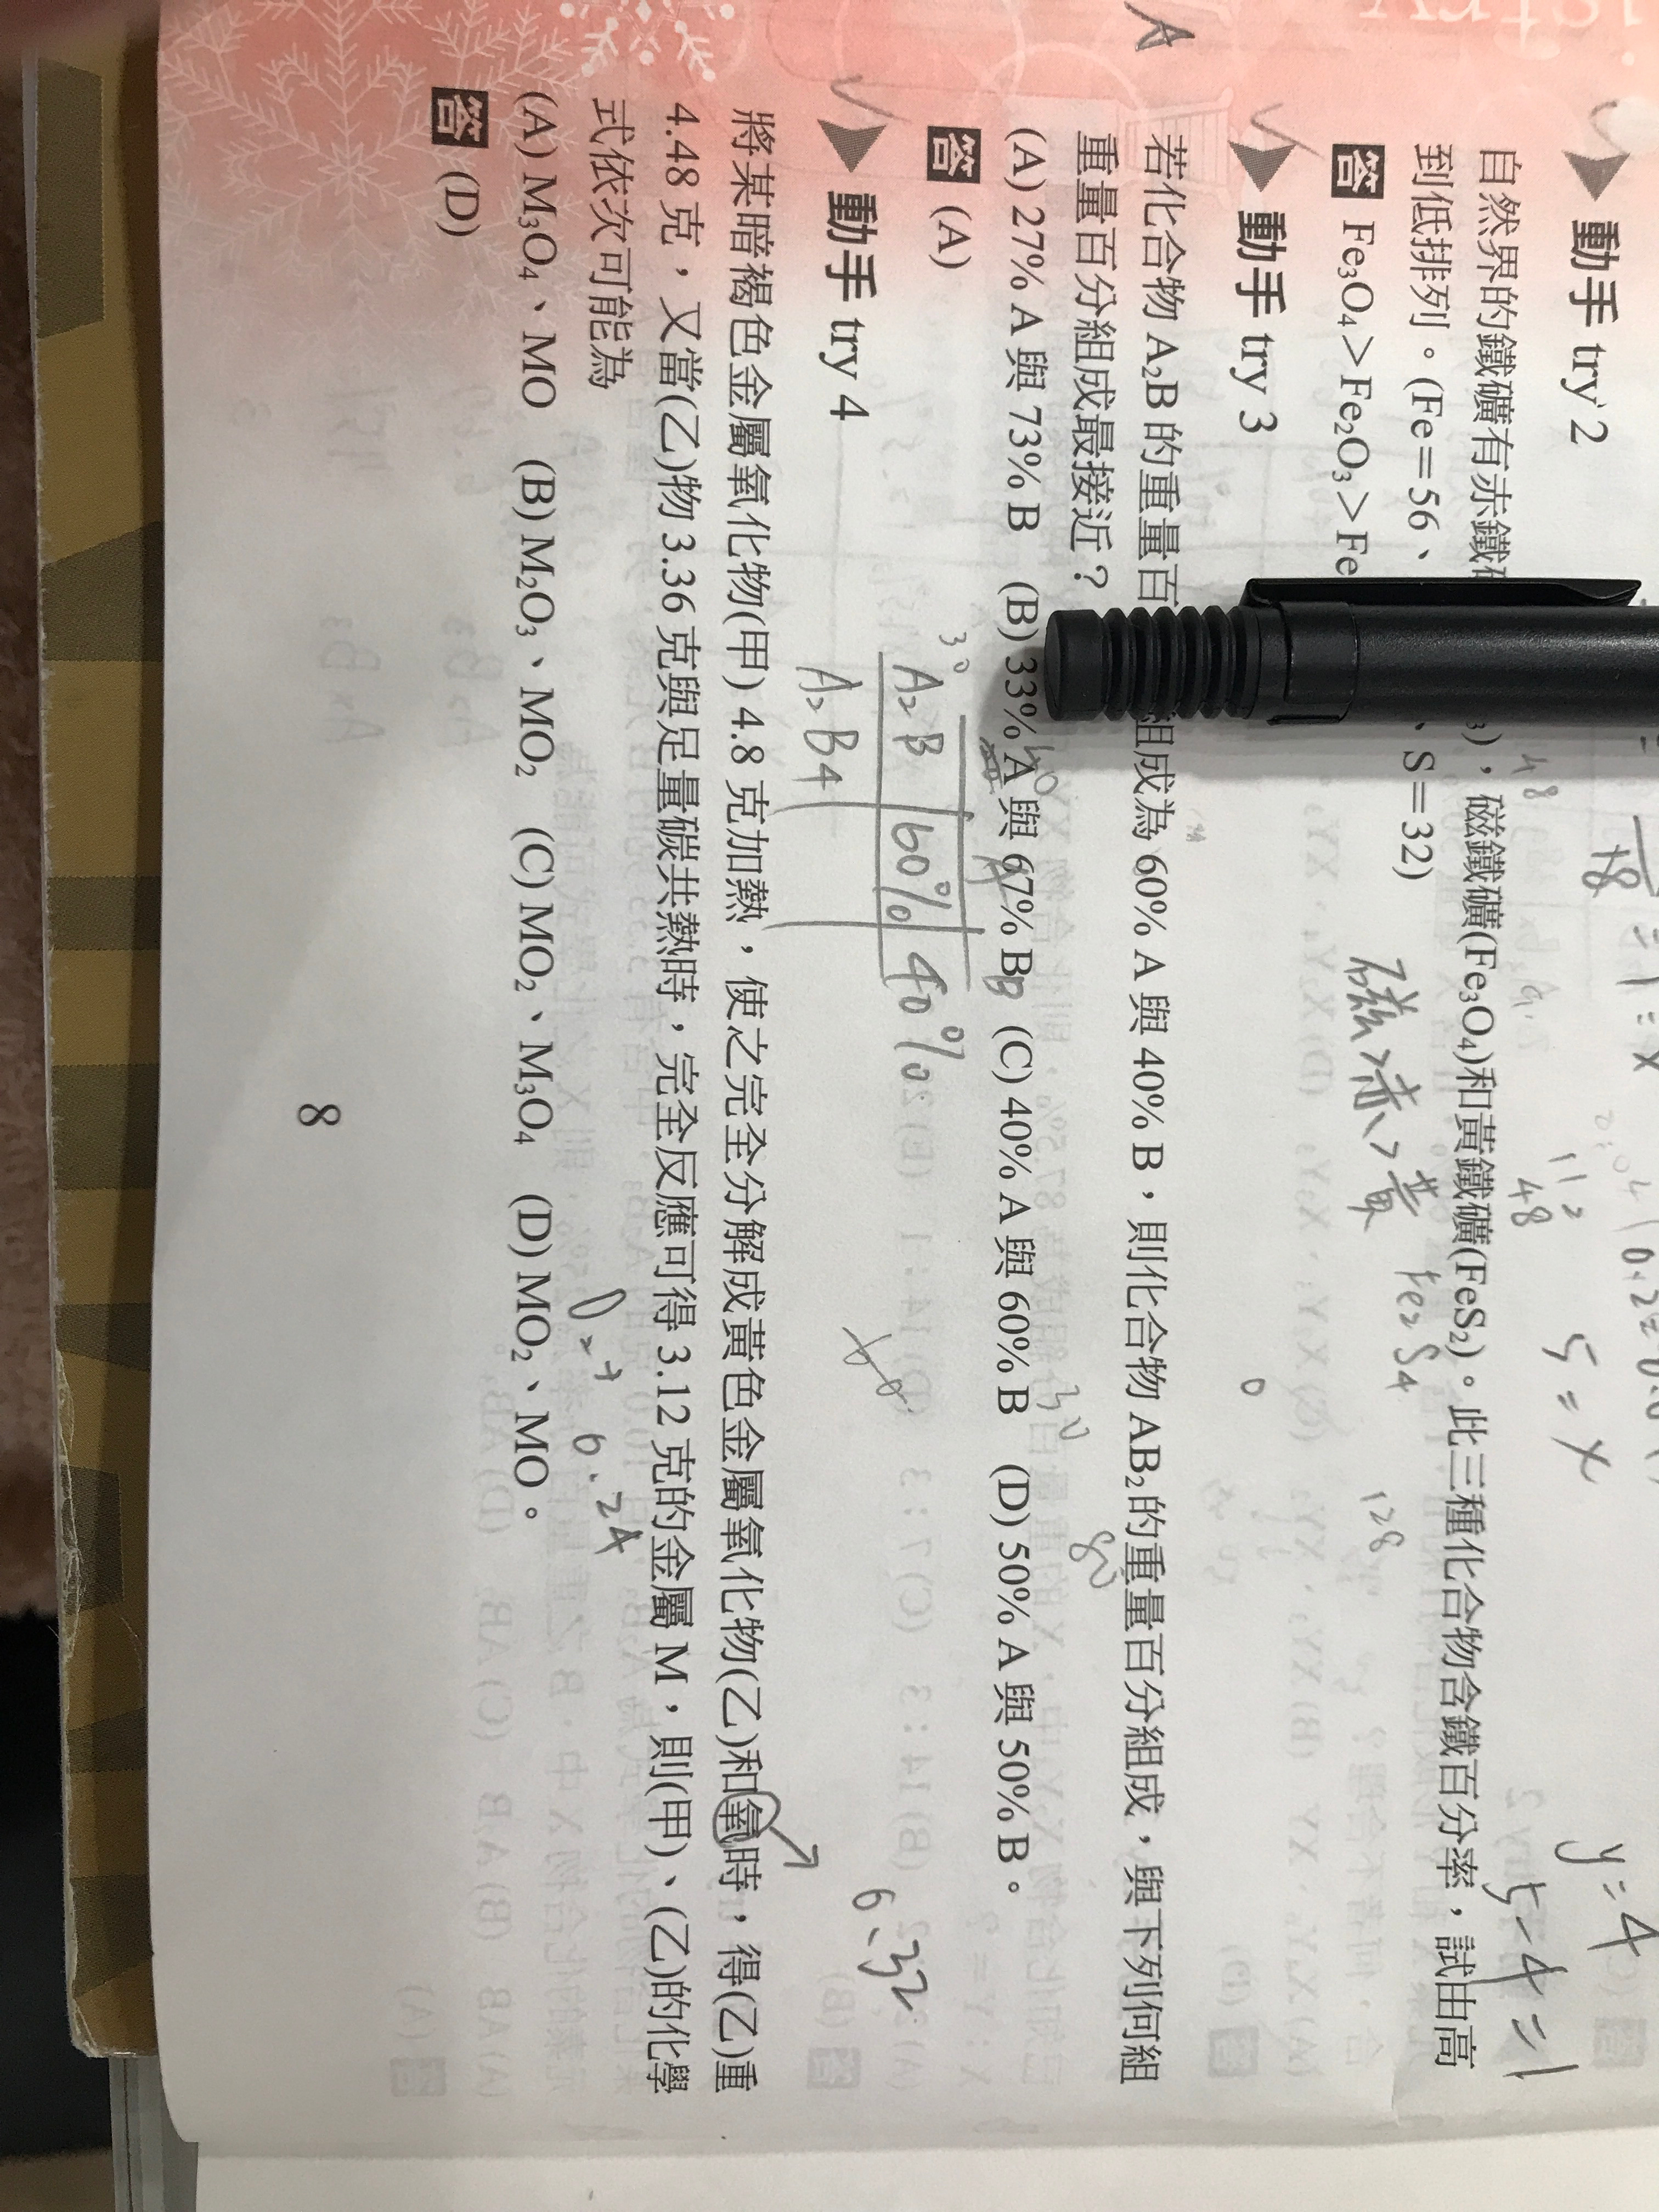 動手 try 2
自然界的鐵礦有赤鐵 磁鐵礦(Fe₃O₄)和黃鐵礦(FeS₂)。此三種化合物含鐵百分率,試由高
到低排列。(Fe=56、 、S=32)
答 Fe₃O₄>Fe₂O₃>Fe
磁>赤>黃
Fe₂S₄
128
112
48
5=x
y=4
5-4=1
動手 try 3
若化合物 A₂B 的重量百 組成為 60% A 與 40% B,則化合物 AB₂的重量百分組成,與下列何組
重量百分組成最接近?
(A) 27% A 與 73% B (B) 33% A 與 67% B (C) 40% A 與 60% B (D) 50% A 與 50% B。
答 (A)
A
A B
A₂B 60% 40%
A₂B₄
30
80
動手 try 4
6.32
將某暗褐色金屬氧化物(甲) 4.8 克加熱,使之完全分解成黃色金屬氧化物(乙)和氧時,得(乙)重
4.48 克,又當(乙)物 3.36 克與足量碳共熱時,完全反應可得 3.12 克的金屬 M,則(甲)、(乙)的化學
式依次可能為
O₂→ 6.24
(A) M₃O₄、MO (B) M₂O₃、MO₂ (C) MO₂、M₃O₄ (D) MO₂、MO。
答 (D)
8